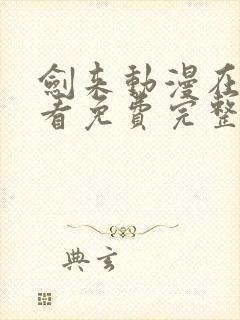 劍來動漫在
看免費完整
典玄